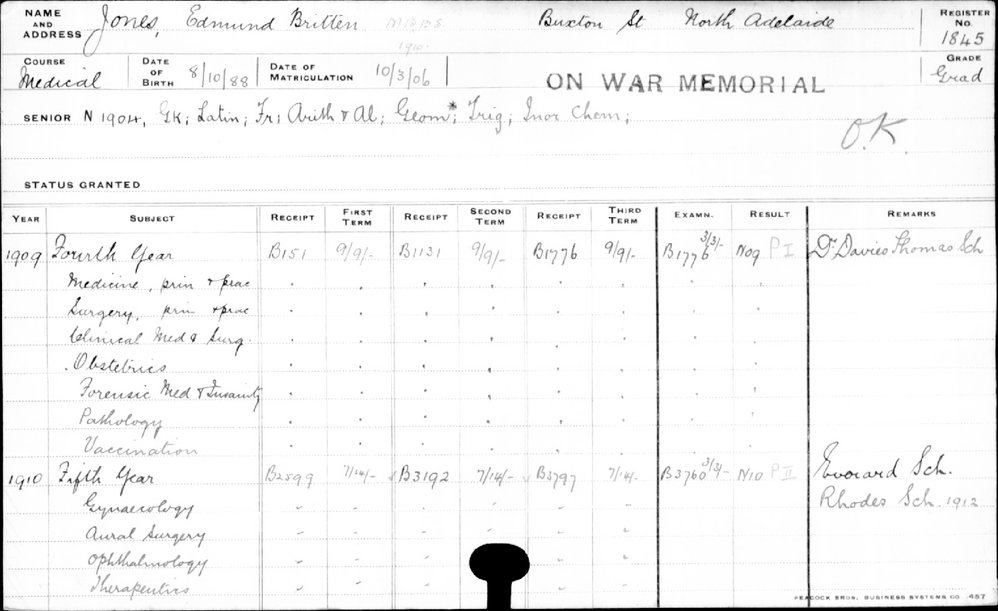 NAME AND ADDRESS Jones, Edmund Britten M.B., B.S. 1910 Buxton St North Adelaide REGISTER No. 1845
COURSE Medical DATE OF BIRTH 8/10/88 DATE OF MATRICULATION 10/3/06 ON WAR MEMORIAL GRADE Grad
SENIOR N 1904, Gk; Latin; Fr; Arith & Al; Geom*; Trig; Inor Chem;
O.K.
STATUS GRANTED
YEAR SUBJECT RECEIPT FIRST TERM RECEIPT SECOND TERM RECEIPT THIRD TERM EXAMN. RESULT REMARKS
1909 Fourth Year B151 9/9/- B1131 9/9/- B1776 9/9/- B1776 3/3/- N09 P I Dr Davies Thomas Sch
Medicine, prin & prac
Surgery, prin & prac
Clinical Med & Surg.
Obstetrics
Forensic Med & Insanity
Pathology
Vaccination
1910 Fifth Year B2599 7/14/- B3192 7/14/- B3797 7/14/- B3760 3/3/- N10 P II Everard Sch.
Gynaecology Rhodes Sch. 1912
Aural Surgery
Ophthalmology
Therapeutics
PEACOCK BROS. BUSINESS SYSTEMS CO. 457